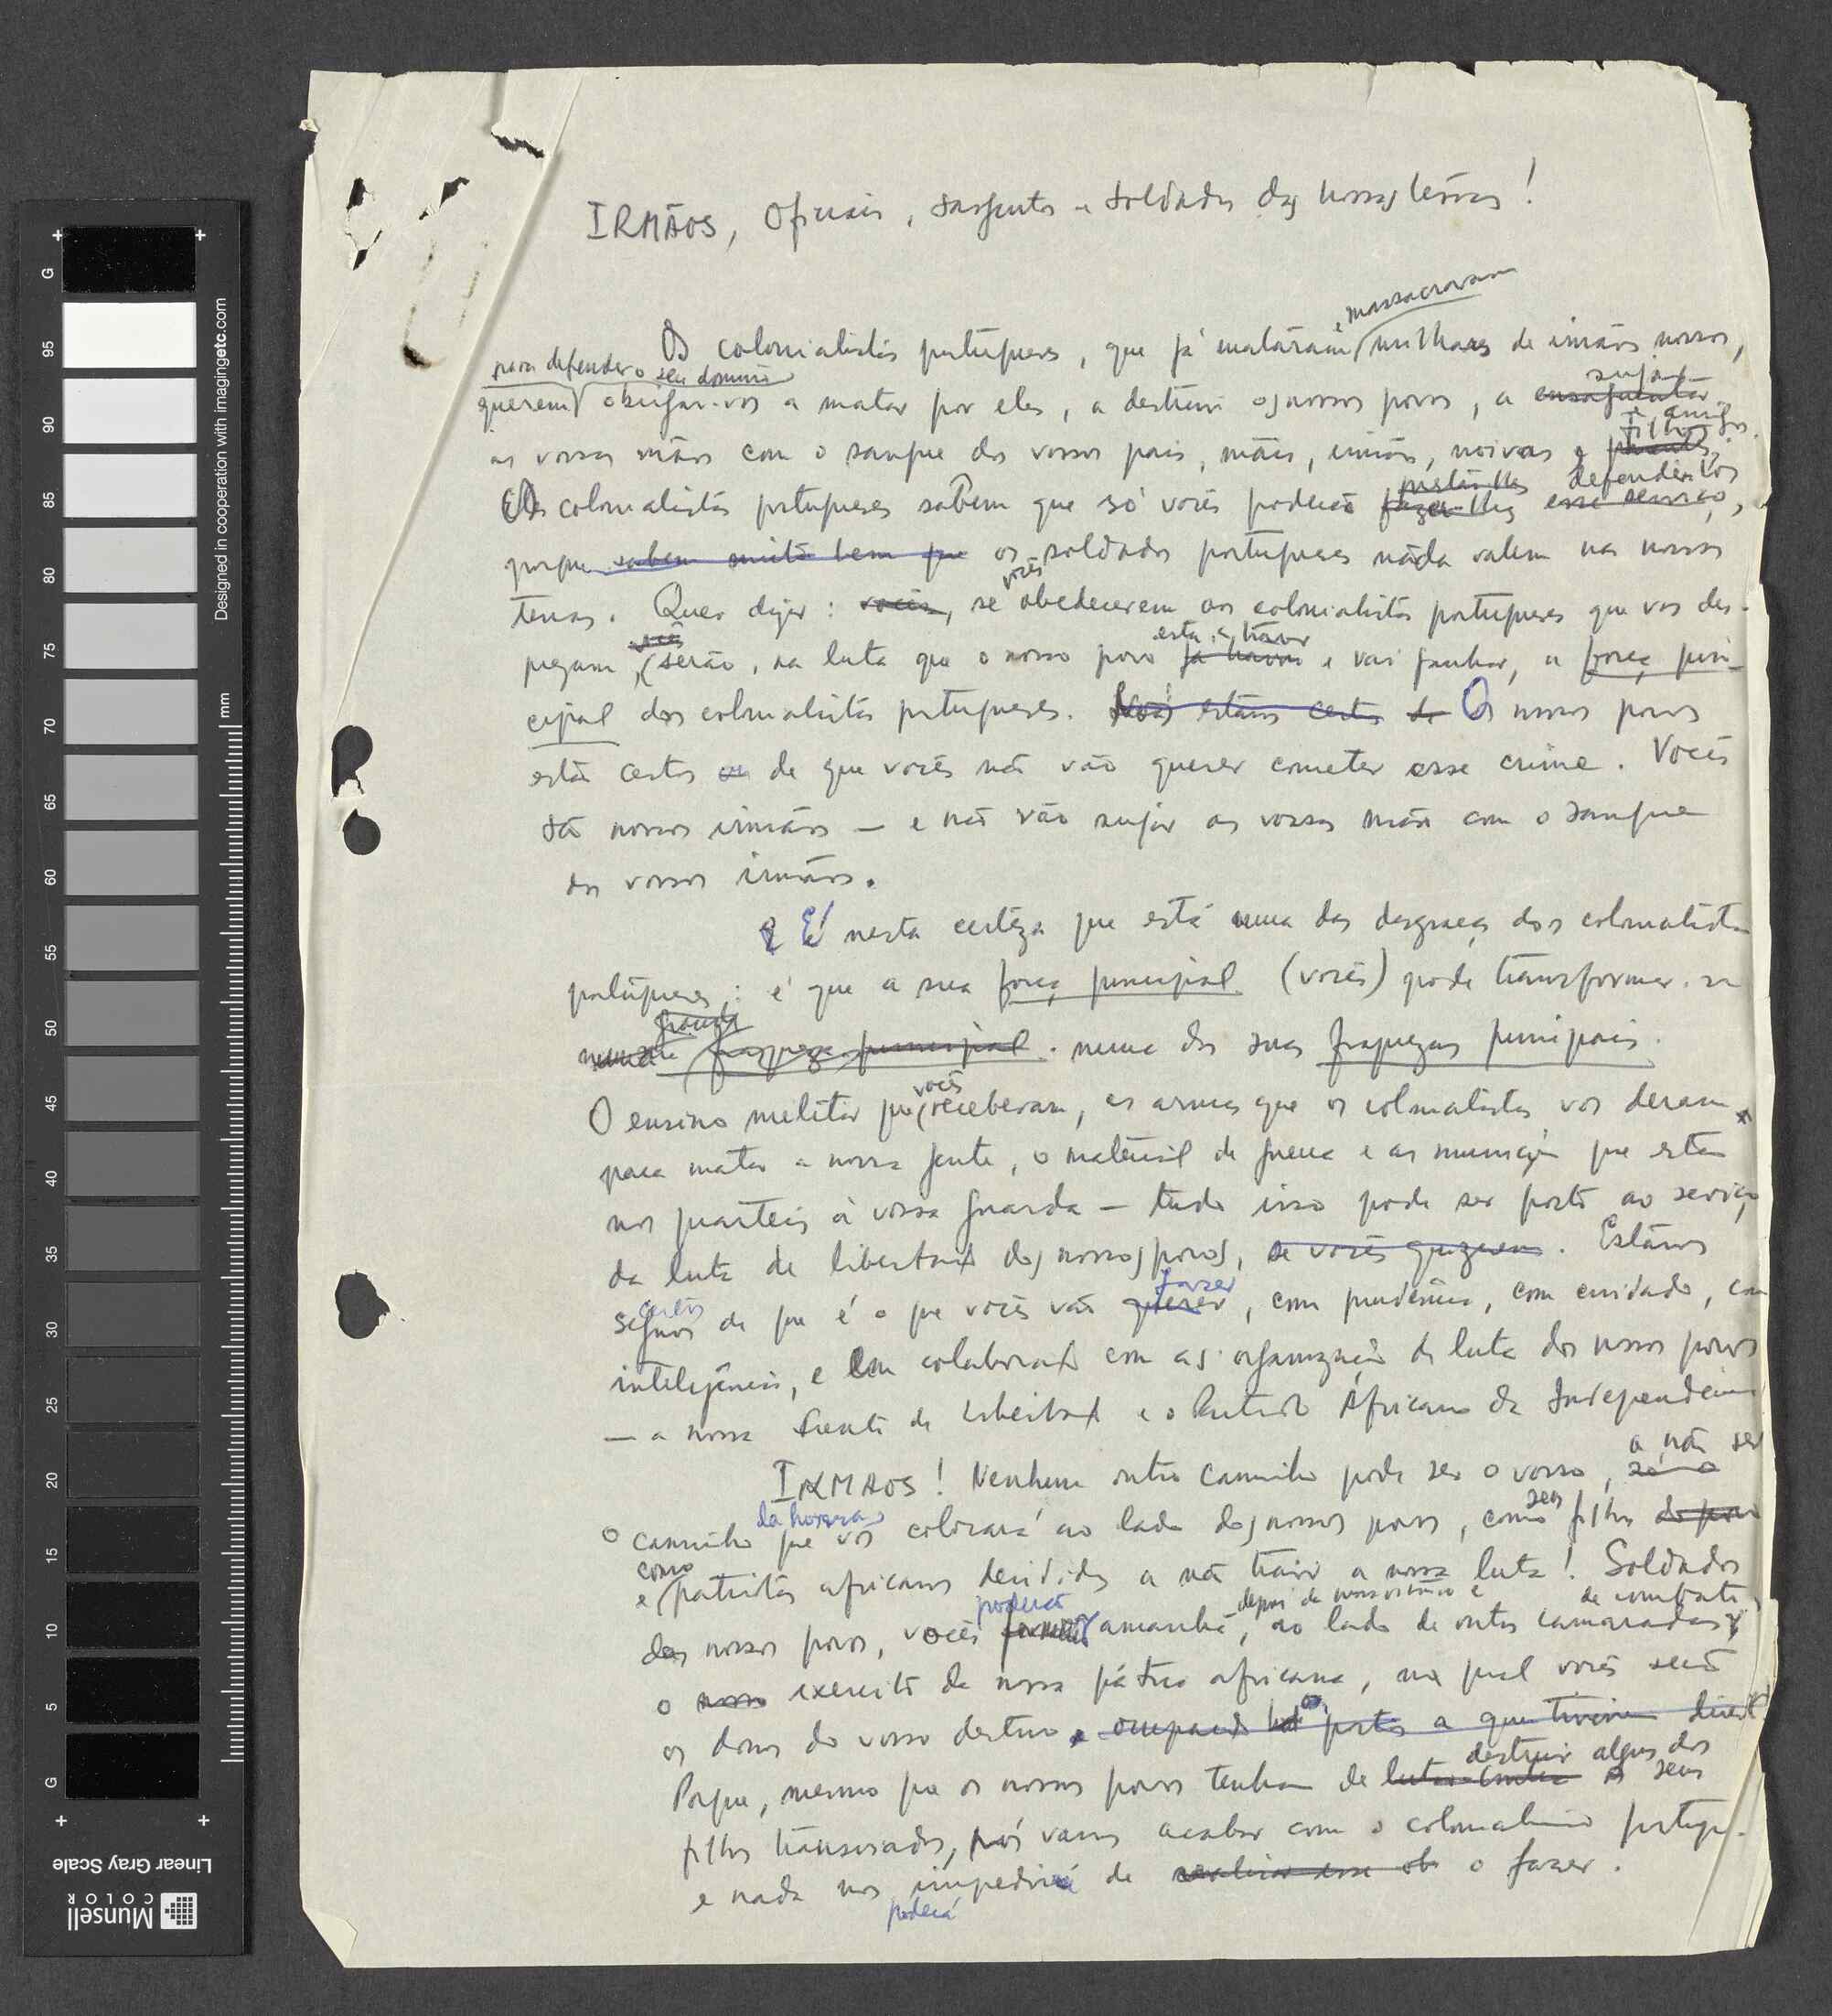 IRMÃOS, Oficiais, sargentos e soldados das nossas terras!
e massacraram
Os colonialistas portugueses, que já mataram milhares de irmãos nossos,
para defender o seu domínio
querem obrigar-vos a matar por eles, a destruir os nossos povos, a ensanguentar
sujar
as vossas mãos com o sangue dos vossos pais, mães, irmãos, noivas e parentes
filhos e amigos.
Os colonialistas portugueses sabem que só vocês poderão fazer-lhes esse serviço,
prestar-lhes defendê-los
porque sabem muito bem que os soldados portugueses nada valem nas nossas
terras. Quer dizer: vocês, se vocês obedecerem aos colonialistas portugueses que vos des-
prezam, vocês serão, na luta que o nosso povo já travou e vai ganhar, a força prin-
está a travar
cipal dos colonialistas portugueses. Nós estamos certos de Os nossos povos
estão certos de que vocês não vão querer cometer esse crime. Vocês
são nossos irmãos — e não vão sujar as vossas mãos com o sangue
dos vossos irmãos.
É nesta certeza que está uma das desgraças dos colonialistas
portugueses: é que a sua força principal (vocês) pode transformar-se
numa grande fraqueza principal. numa das suas fraquezas principais.
O ensino militar que vocês receberam, as armas que os colonialistas vos deram
para matar a nossa gente, o material de guerra e as munições que estão
nos quarteis à vossa guarda — tudo isso pode ser posto ao serviço
da luta de libertação dos nossos povos, se vocês quizerem. Estamos
seguros certos de que é o que vocês vão querer fazer, com prudência, com cuidado, com
inteligência, e em colaboração com as organização de luta dos nossos povos
— a nossa Frente de Libertação e o Partido Africano da Independência
IRMÃOS! Nenhum outro caminho pode ser o vosso, só o a não ser
o caminho da honra que vos colocará ao lado dos nossos povos, como seus filhos do povo
e como patriotas africanos decididos a não trair a nossa luta! Soldados
dos nossos povos, vocês poderão amanhã, depois da nossa vitória e ao lado de outros camaradas de combate,
o nosso exercito da nossa pátria africana, no qual vocês serão
os donos do vosso destino e ocupando os postos a que tiverem direito
Porque, mesmo que os nossos povos tenham de lutar contra destruir alguns dos seus
filhos transviados, nós vamos acabar com o colonialismo português
e nada nos impedirá de realizar esse ob o fazer.
poderá